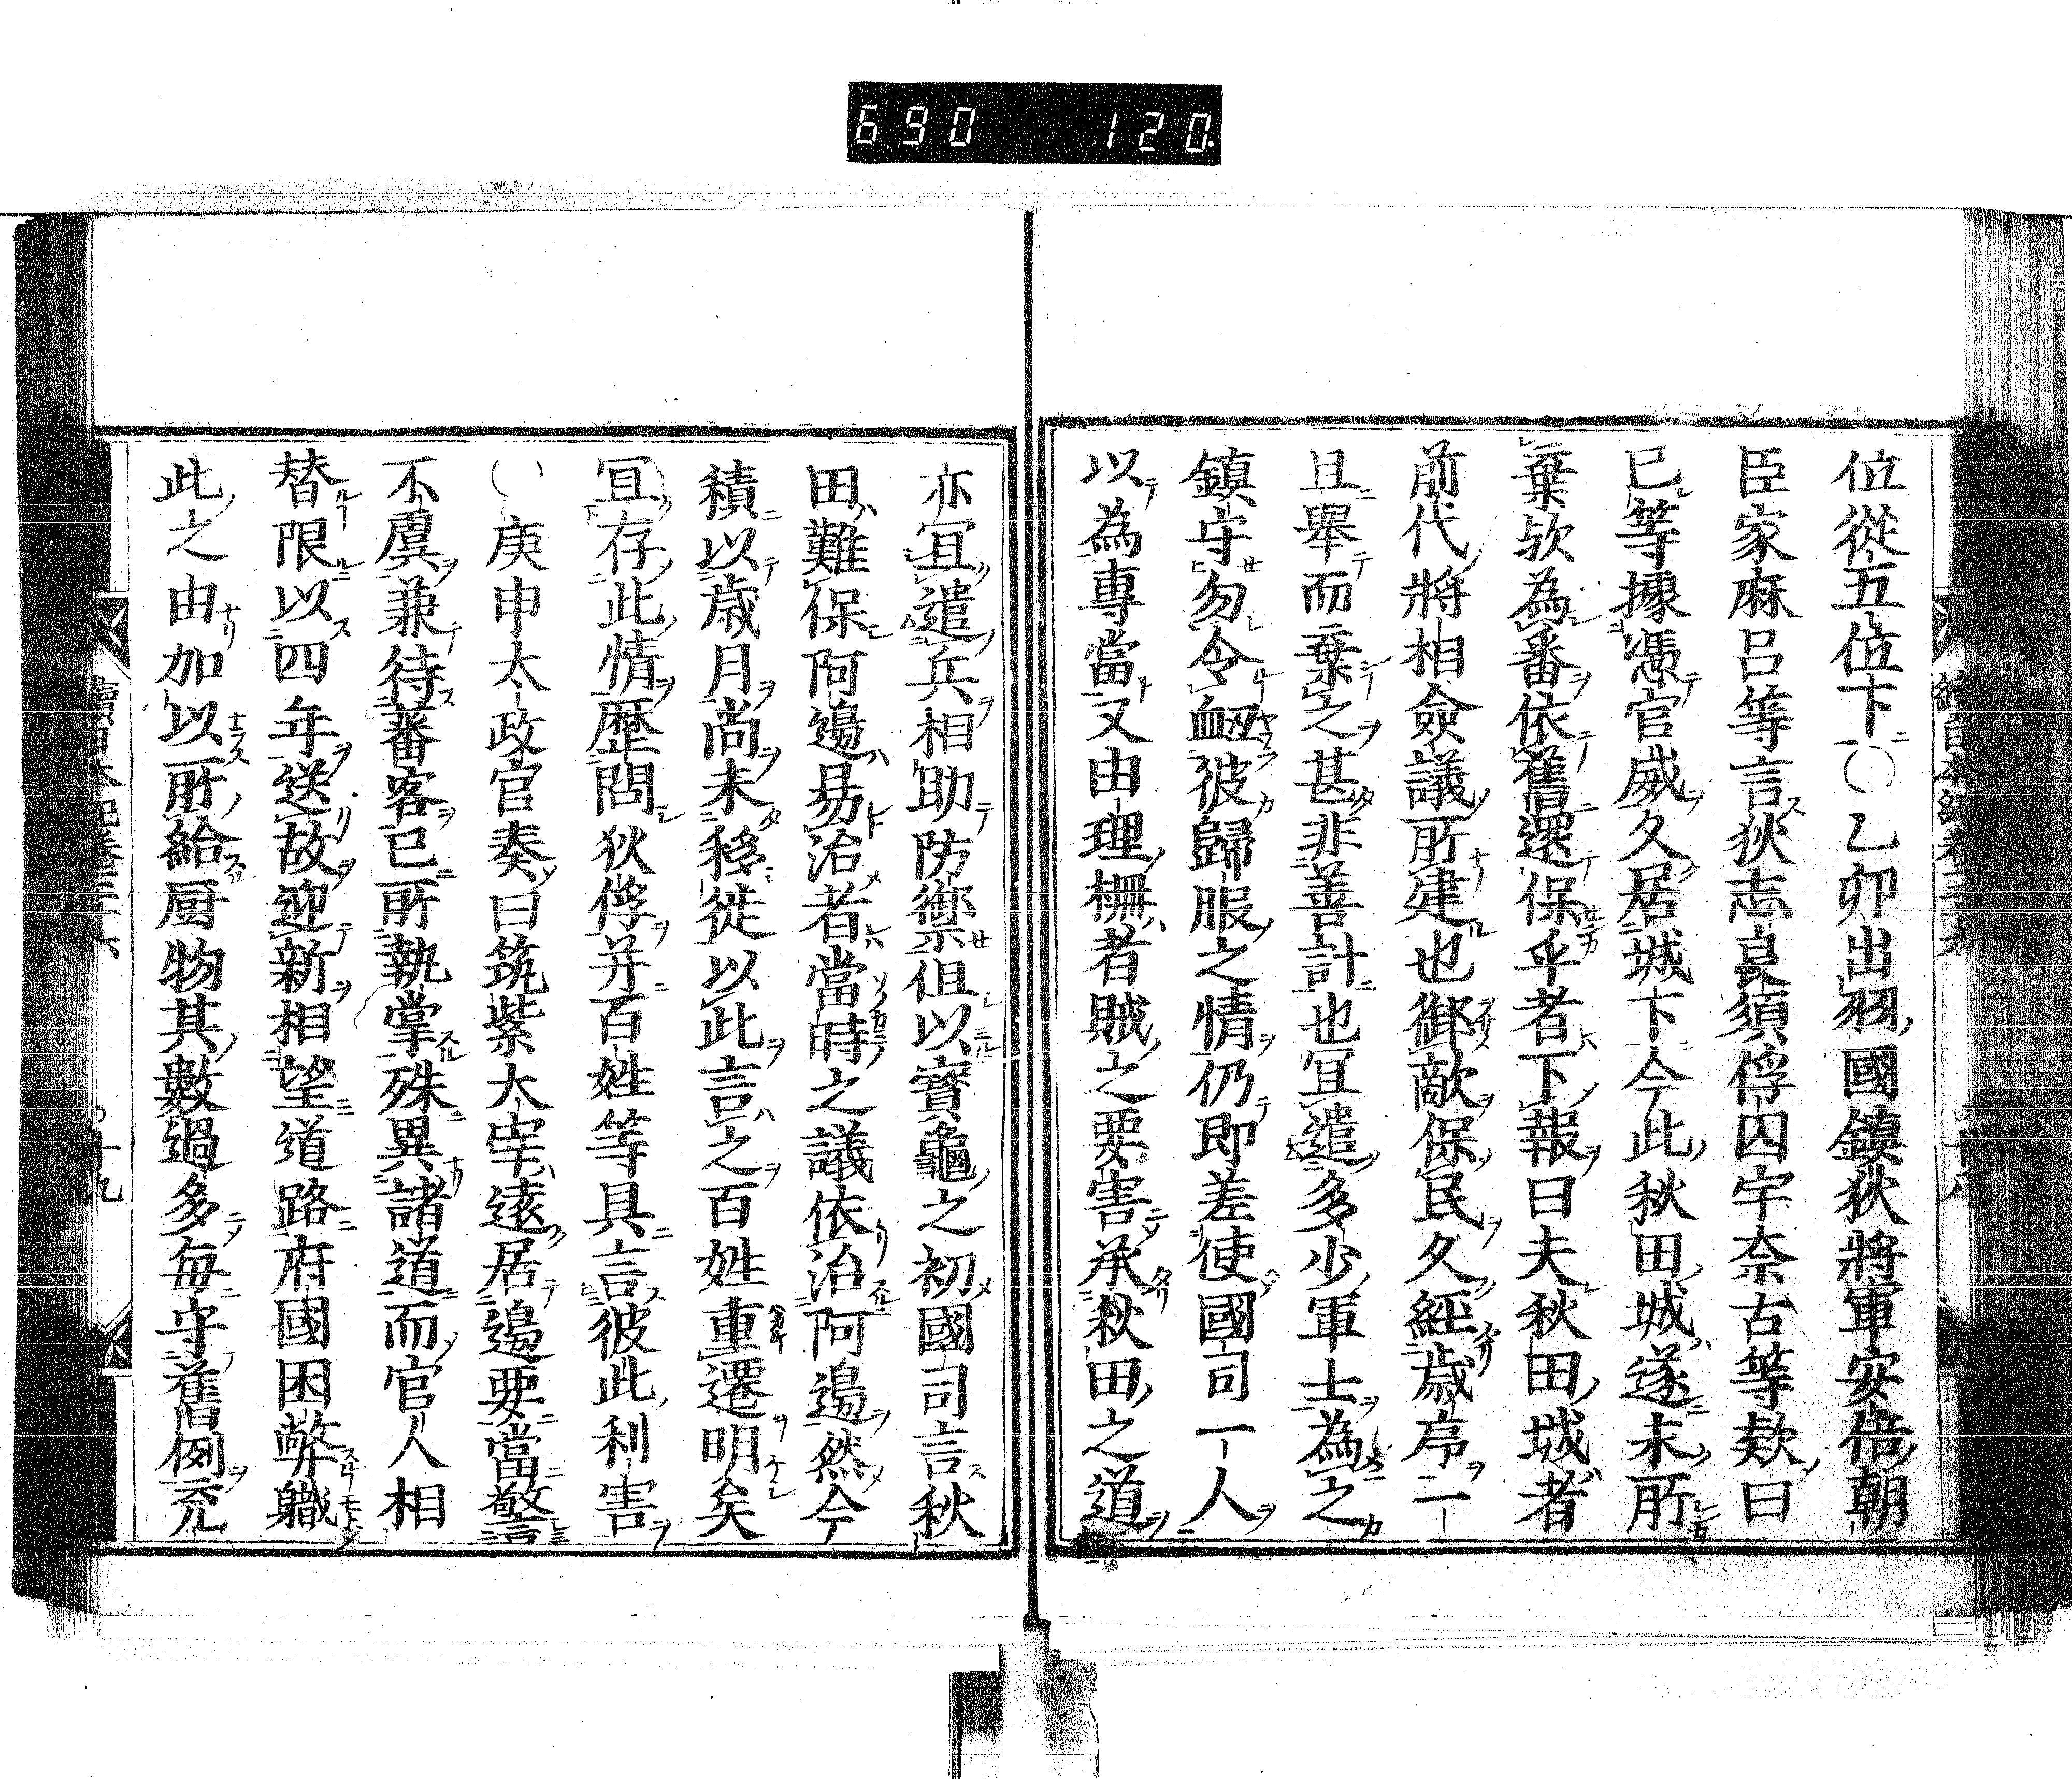 690 120
位從五位下○乙卯出羽國鎮狄將軍安倍朝
臣家麻呂等言狄志良須俘囚宇奈古等欵曰
已等據憑官威久居城下今此秋田城遂未所
棄欤為番依舊還保乎者下報曰夫秋田城者
前代將相僉議所建也御敵保民久經歳序一
旦舉而棄之甚非善計也冝遣多少軍士為之
鎮守勿令衂彼歸服之情仍即差使國司一人
以為專當又由理柵者賊之要害承秋田之道
亦冝遣兵相助防禦但以寳龜之初國司言秋
田難保河邊易治者當時之議依治河邊然今
積以歳月尚未移徙以此言之百姓重遷明矣
冝存此情歴問狄俘并百姓等具言彼此利害
○庚申太政官奏曰筑紫大宰遠居邊要當警
不虞兼待蕃客已所執掌殊異諸道而官人相
替限以四年送故迎新相望道路府國困弊職
此之由加以所給厨物其數過多毎守舊例充
十九